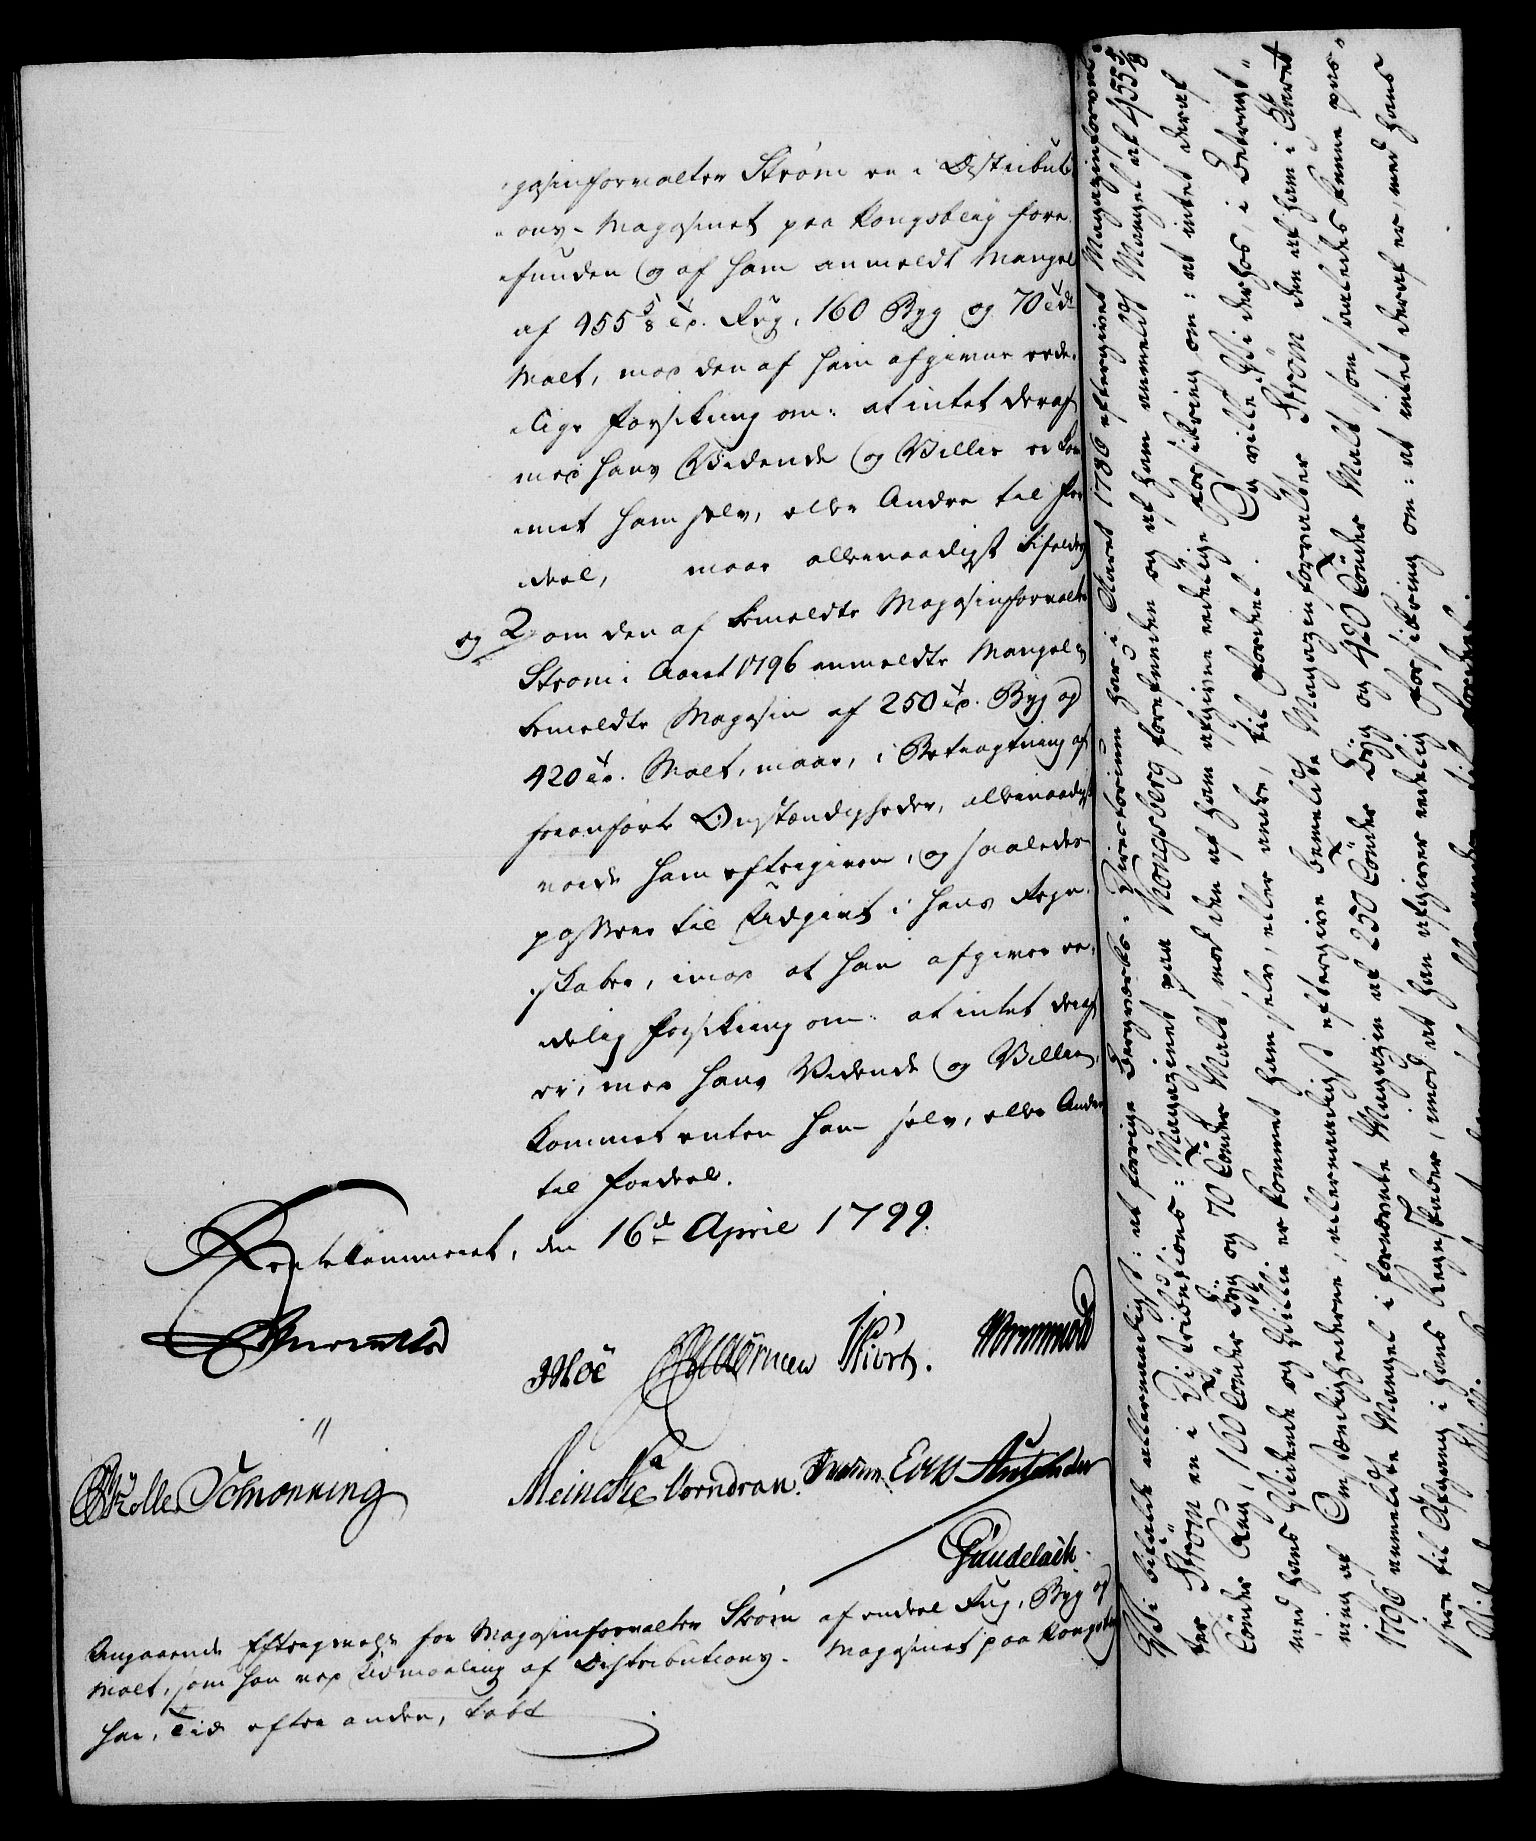 gasinforvalter Strøm en i Distributi
ons-Magasinet paa Kongsberg fore
funden og af ham anmeldt Mangel
af 455 5/8 Tr. Rug, 160 Byg og 70 Tdr
Malt, mod den af ham afgivne eede
lige Forsikring om: at intet deraf
med hans Vidende og Villie er kom
met ham selv, eller Andre til For
deel, maae allernaadigst bifaldes
og 2, om den af bemeldte Magasinforvalter
Strøm i Aaret 1796 anmeldte Mangel i
bemeldte Magasin af 250 Tr. Byg og
420 Tr. Malt, maae, i Betragtning af
foranførte Omstændigheder, allernaadigst
vorde ham eftergiven, og saaledes
passere til Udgivt i hans Regn
skaber, imod at han afgiver ee
delig Forsikring om: at intet deraf
er, med hans Vidende og Villie,
kommet enten ham selv, eller Andre
til Fordeel.
Rentekammeret, den 16de April 1799.
Moe Hiort. Wormskiold
Schønning
Meincke Vorndran.
Gundelach.
Angaaende Eftergivelse for Magasinforvalter Strøm af endeel Rug, Byg og
Malt, som han ved Udmaaling af Distributions-Magasinet paa Kongsberg
har, Tid efter anden, tabt
Vi bifalde allernaadigst: at forrige Bergværks-Directorium har i Aaret 1786 eftergivet Magazinforval
ter Strøm en i Distributions-Magazinet paa Kongsberg forefunden og af ham anmeldt Mangel af 455 5/8
Tønder Rug, 160 Tønder Byg og 70 Tønder Malt, mod den af ham afgivne eedelige Forsikring om: at intet deraf
med hans Vidende og Villie er kommet ham selv, eller andre, til Fordeel. Og ville Vi derhos, i Betragt
ning af Omstændighederne, allernaadigst eftergive bemeldte Magazinforvalter Strøm den af ham i Aaret
1796 anmeldte Mangel i fornævnte Magazin af 250 Tønder Byg og 420 Tønder Malt som saaledes kunne pas
sere til Afgang i hans Regnskaber, imod at han afgiver eedelig Forsikring om: at intet deraf er, med hans